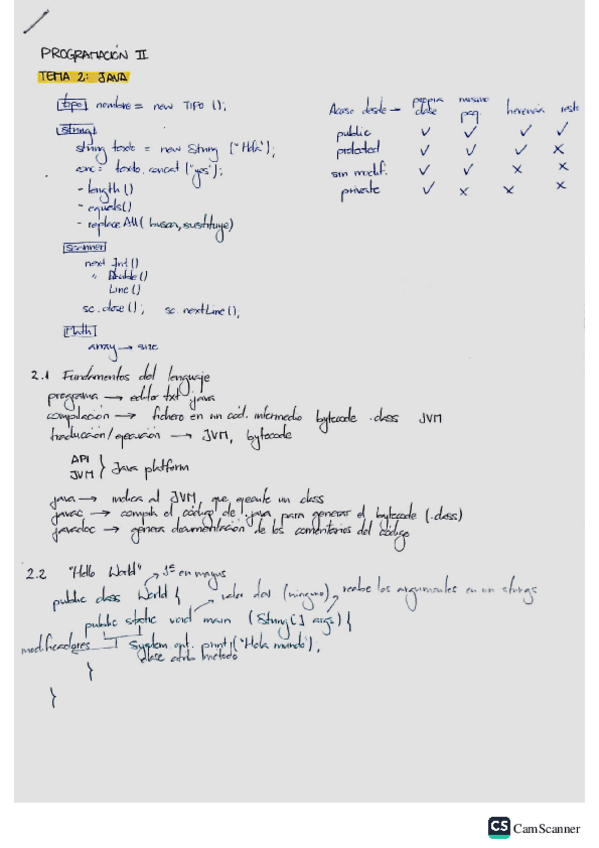 PROGRAMACIÓN II
TEMA 2: JAVA
tipo nombre = new TIPO ();
String
string texto = new String ["Hola"];
texto.concat ["yes"];
- length()
- equals()
- replaceAll( buscar, sustituye)
Scanner
next Int()
" Double()
Line()
sc.close(); sc.nextLine();
Math
array → size
Acceso desde → propia clase mismo paq. herencia resto
public ✓ ✓ ✓ ✓
protected ✓ ✓ ✓ ✗
sin modif. ✓ ✓ ✗ ✗
private ✓ ✗ ✗ ✗
2.1 Fundamentos del lenguaje
programa → editor txt .java
compilación → fichero en un cód. intermedio bytecode .class JVM
traducción/ejecución → JVM, bytecode
API
JVM } Java platform
java → indica al JVM, que ejecute un class
javac → compila el código de .java para generar el bytecode (.class)
javadoc → genera documentación de los comentarios del código
2.2 "Hello World" → 1ª en mayus
public class World {
valor dev (ninguno), recibe los argumentos en un strings
public static void main (String[] args) {
modificadores
System.out.print("Hola mundo");
clase atrib método
}
}
CS CamScanner